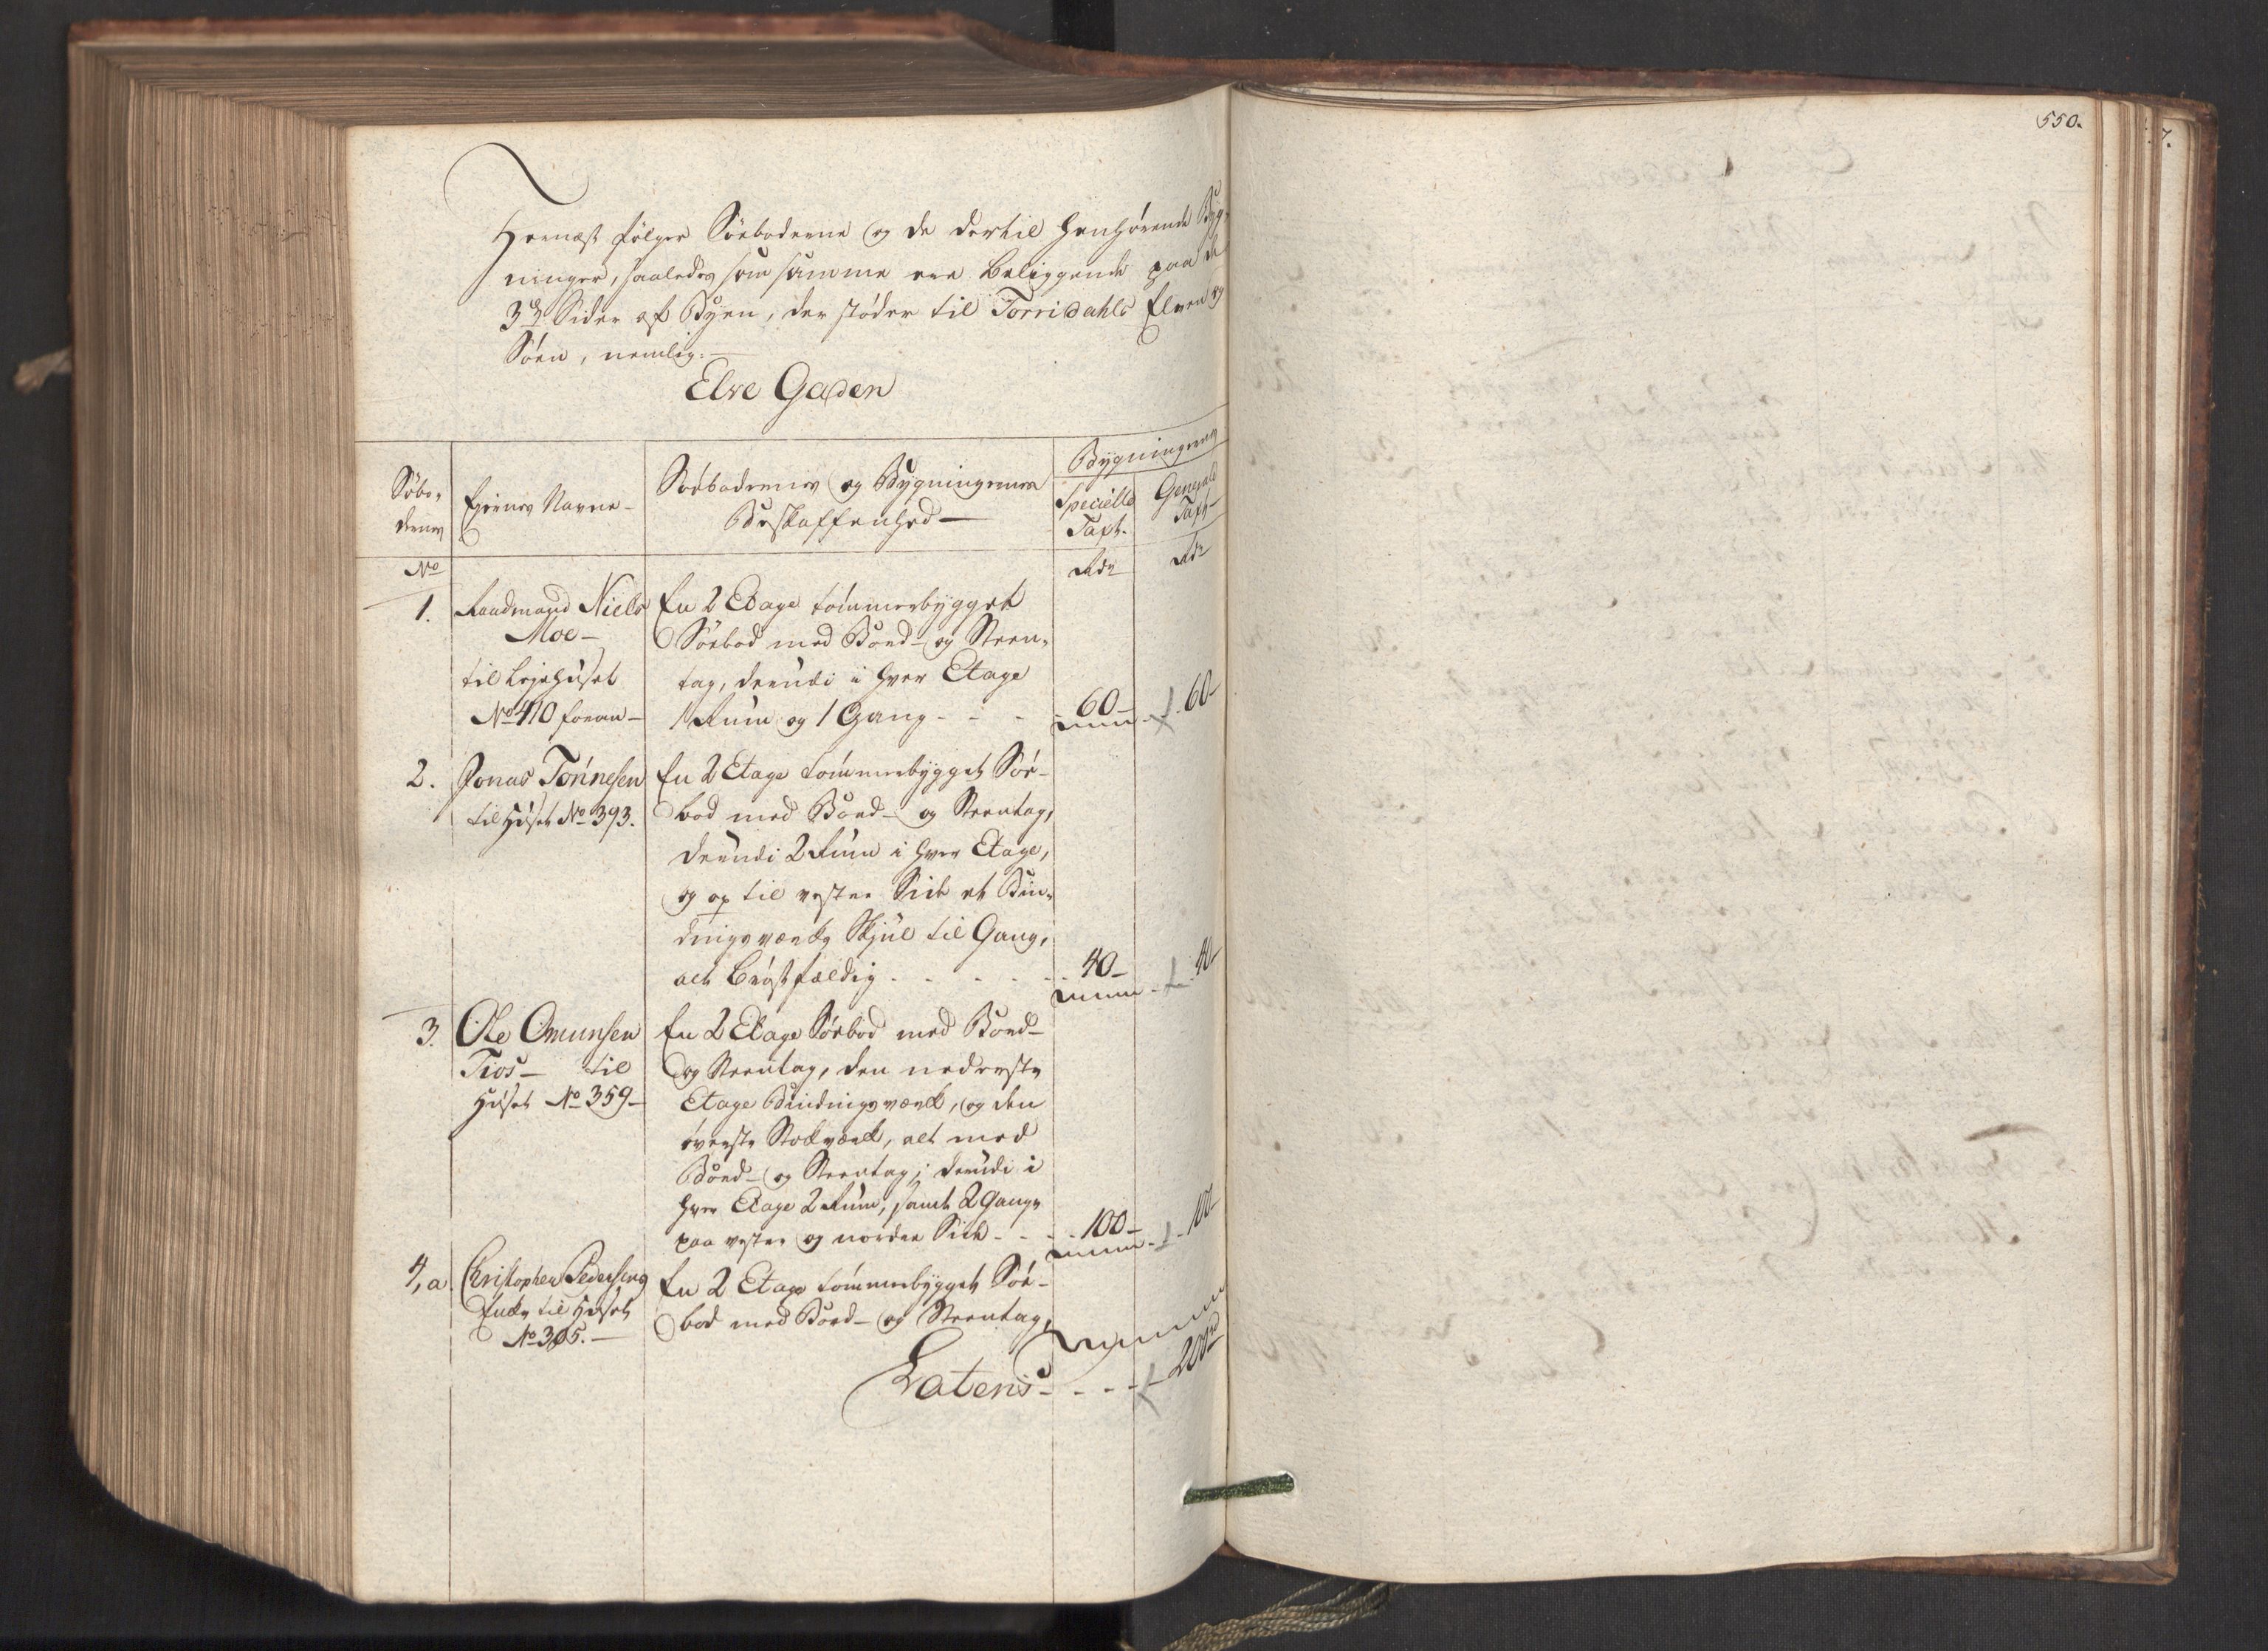 550.
Hernæst følger Söeboderne og de dertil henhörende Byg-
ninger, saaledes som samme ere beliggende paa de
3de Sider af Byen, der støder til Torridahls Elven og
Söen, nemlig:
Elve Gaden
Söbo-
dernes
Ejernes Navne
Söebodernes og Bygningernes
Beskaffenhed
Bygningernes
Specielle
Taxt.
Generale
Taxt
No
Rdr
Rdr
1. Raadmand Niels
Moe
til Lejehuset
No 410 foran
En 2 Etage tømmerbygget
Söebod med Bord- og Steen-
tag, derudi i hver Etage
1 Rum og 1 Gang 60 60
2. Jonas Tönnesen
til Huset No 393.
En 2 Etage tömmerbygget Söe-
bod med Bord- og Steentag,
derudi 2 Rum i hver Etage,
og op til vestre Side et Bin-
dingsværks Skjul til Gang,
alt brøstfældig 40 40
3. Ole Omunsen
Tios til
Huset No 359
En 2 Etage Söebod med Bord-
og Steentag, den nederste
Etage Bindingsværk, og den
øverste Stokværk, alt med
Bord- og Steentag; derudi i
hver Etage 2 Rum, samt 2 Gange
paa vestre og nordre Side 100 100
4, a. Christopher Pedersens
Enke til Huset
No 305.
En 2 Etage tömmerbygget Söe-
bod med Bord- og Steentag,
Lateris 200